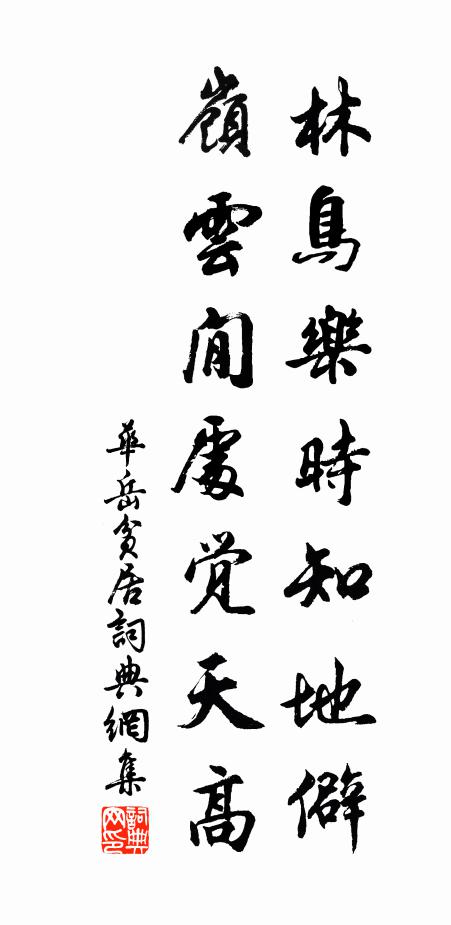 林鳥樂時知地僻
嶺雲閒處覺天高
華岳貧居詞典網集
詞典網印